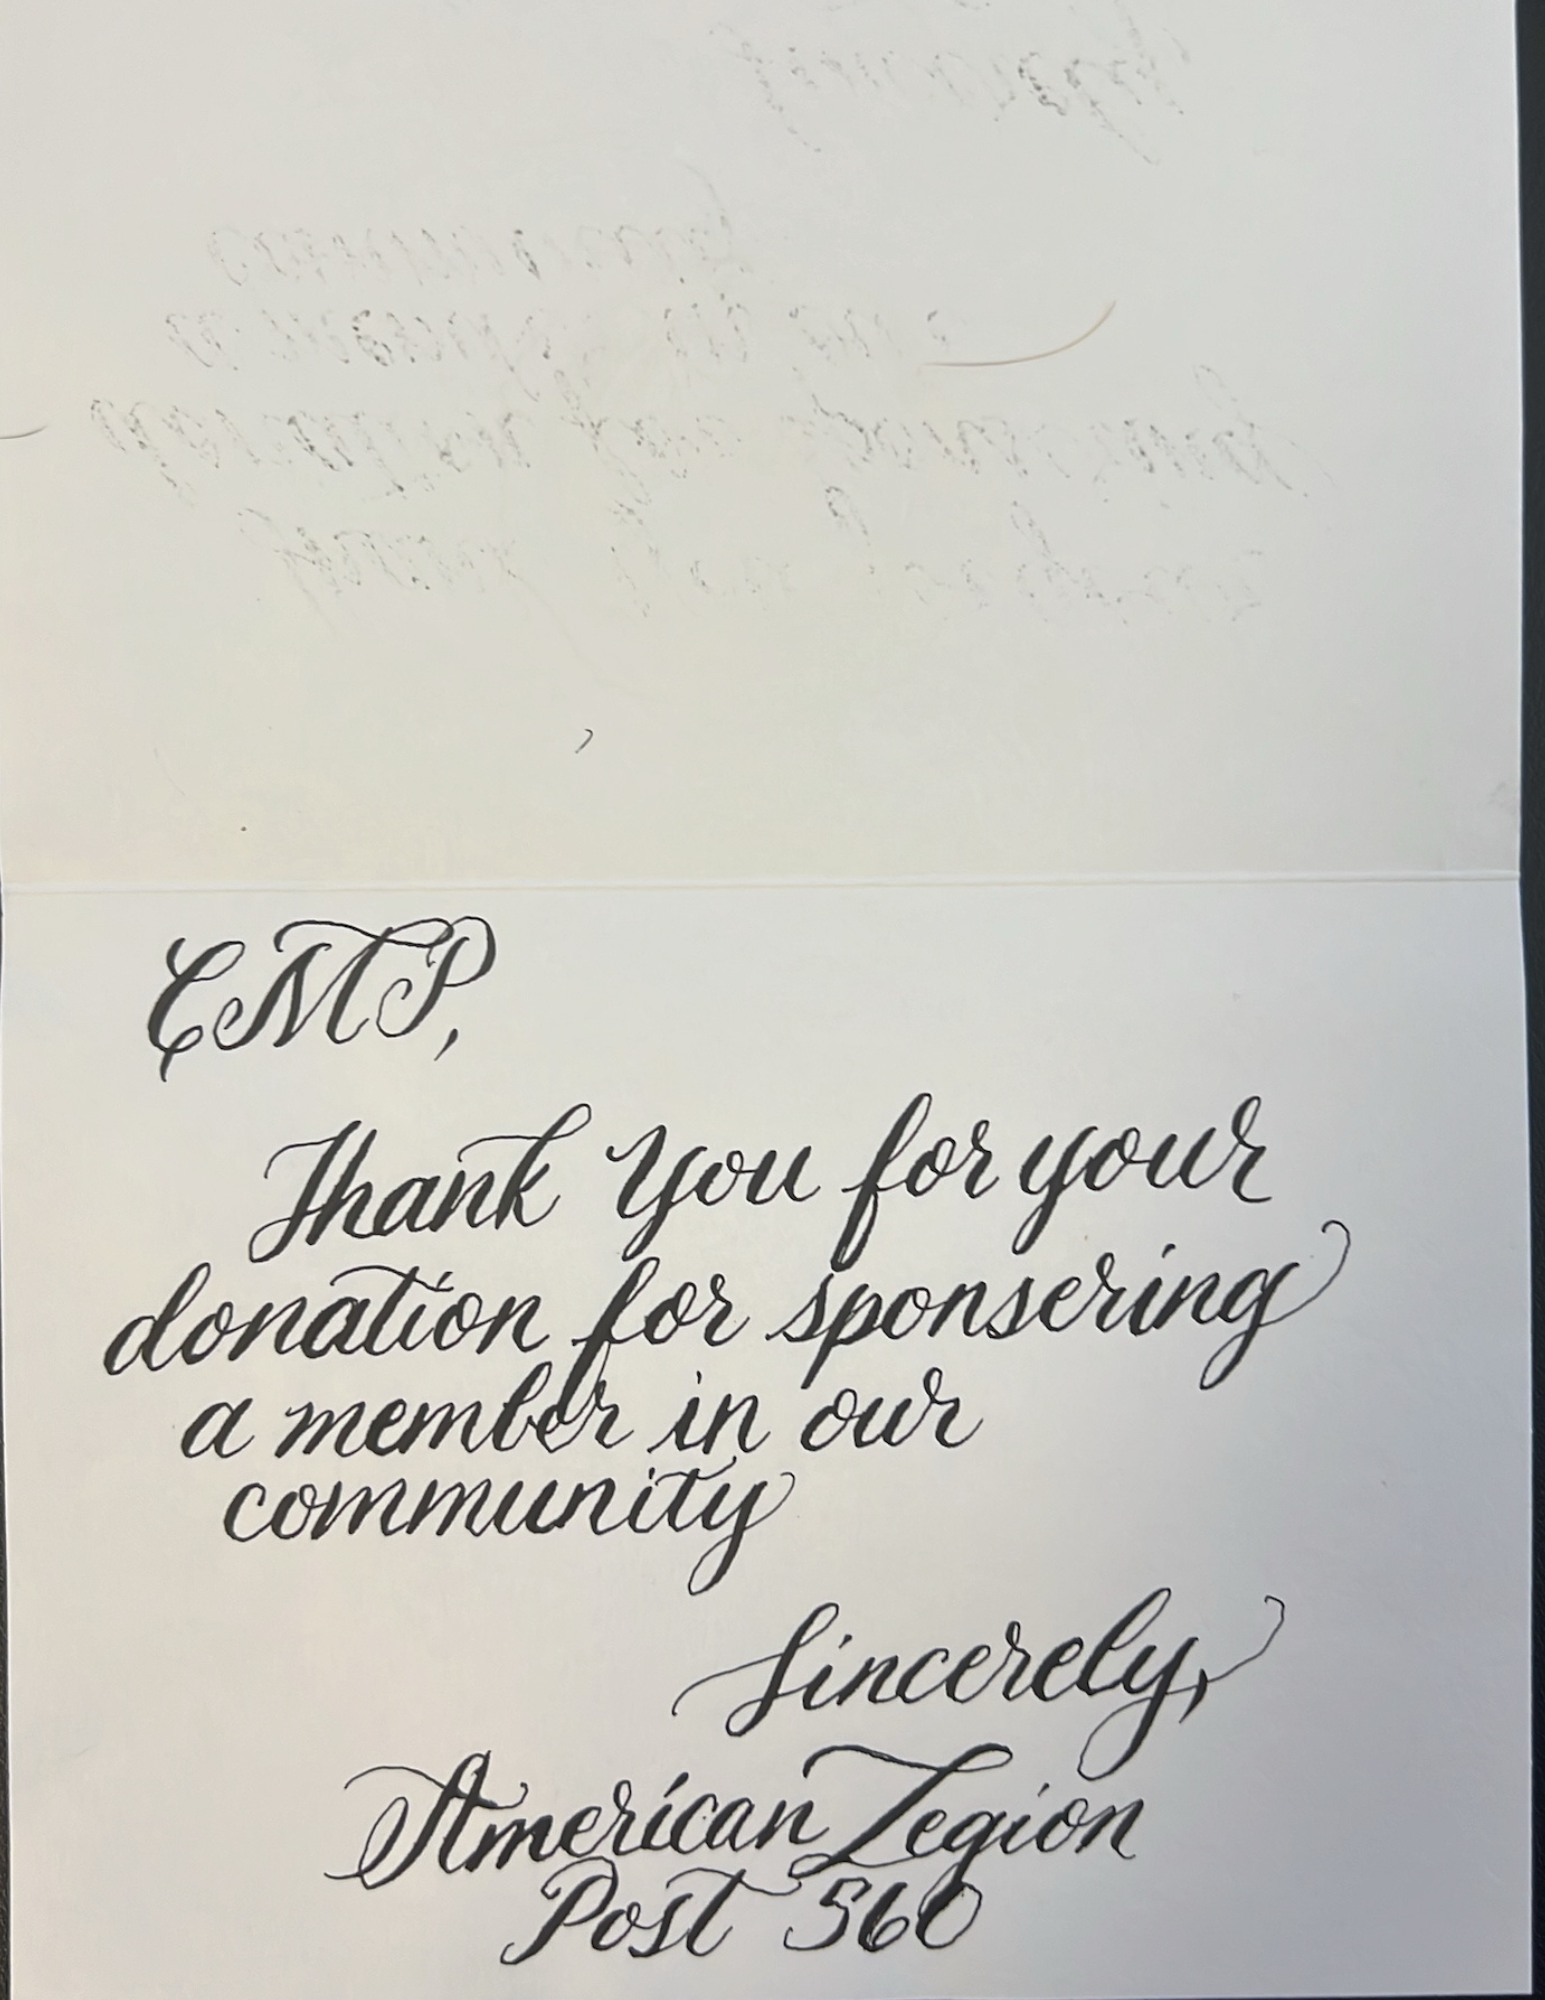 CMP,
Thank You for your
donation for sponsering
a member in our
community
Sincerely,
American Legion
Post 560